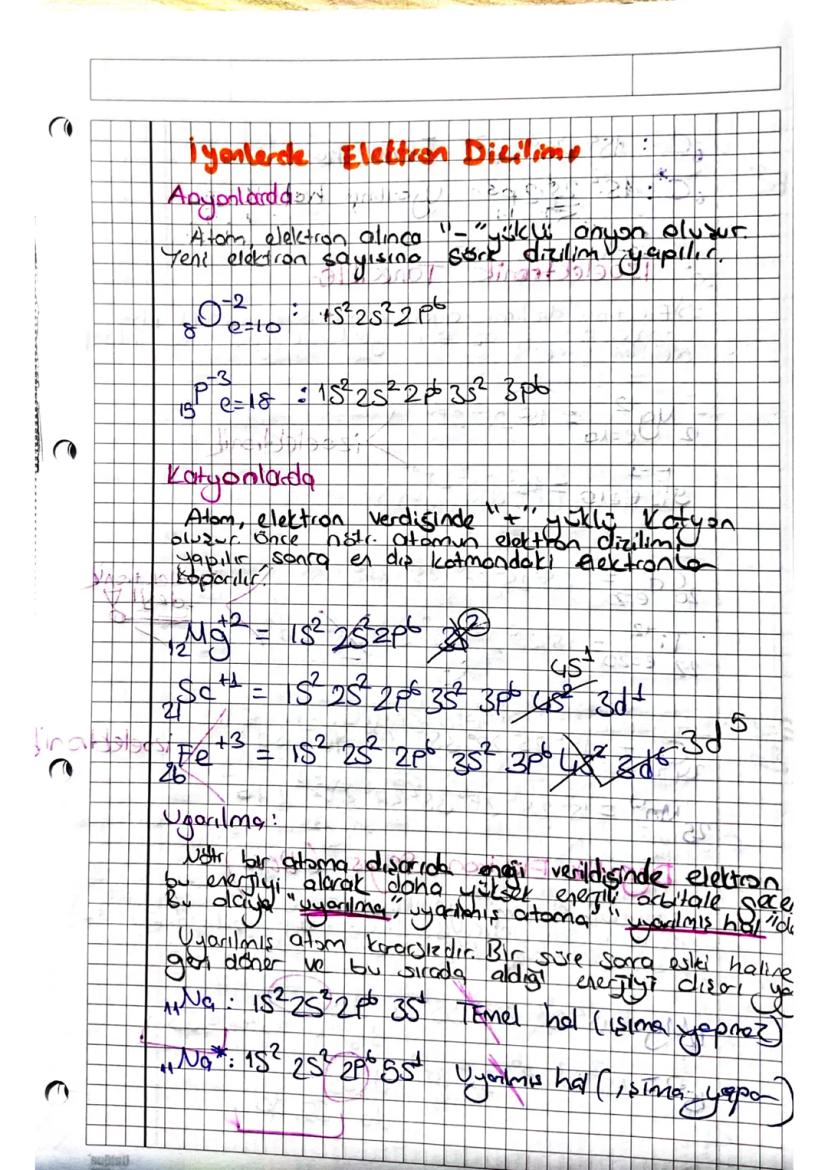 İyonlerde Elektron Dizilimi
Anyonlarda
Atom, elektron alınca "-" yüklü anyon oluşur.
Yeni elektron sayısına göre dizilim yapılır.
₈O⁻² e=10 : 1s² 2s² 2p⁶
₁₅P⁻³ e=18 : 1s² 2s² 2p⁶ 3s² 3p⁶
Katyonlarda
Atom, elektron verdiğinde "+" yüklü Katyon
oluşur. Önce nötr atomun elektron dizilimi
yapılır, sonra en dış katmandaki elektronlar
koparılır.
₁₂Mg⁺² = 1s² 2s² 2p⁶ 3s²
4s¹
₂₁Sc⁺¹ = 1s² 2s² 2p⁶ 3s² 3p⁶ 4s² 3d¹
₂₆Fe⁺³ = 1s² 2s² 2p⁶ 3s² 3p⁶ 4s² 3d⁶ 3d⁵
Uyarılma:
Nötr bir atoma dışarıda enerji verildiğinde elektron
bu enerjiyi alarak daha yüksek enerjili orbitale geçer
Bu olaya "uyarılma", uyarılmış atoma "uyarılmış hal" de
Uyarılmış atom kararsızdır. Bir süre sonra eski haline
geri döner ve bu sırada aldığı enerjiyi dışarı ya
₁₁Na : 1s² 2s² 2p⁶ 3s¹ Temel hal (ışıma yapmaz)
₁₁Na* : 1s² 2s² 2p⁶ 5s¹ Uyarılmış hal (ışıma yapar)